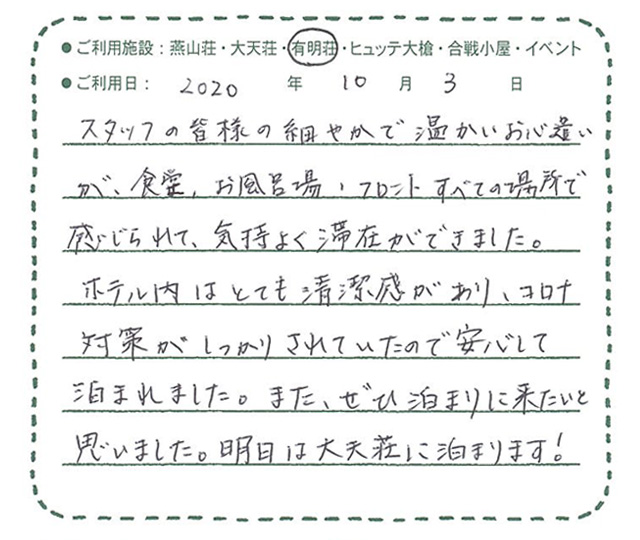 ●ご利用施設：燕山荘・大天荘・有明荘・ヒュッテ大槍・合戦小屋・イベント
●ご利用日： 2020 年 10 月 3 日
スタッフの皆様の細やかで温かいお心遣い
が、食堂、お風呂場、フロントすべての場所で
感じられて、気持よく滞在ができました。
ホテル内はとても清潔感があり、コロナ
対策がしっかりされていたので安心して
泊まれました。また、ぜひ泊まりに来たいと
思いました。明日は大天荘に泊まります！